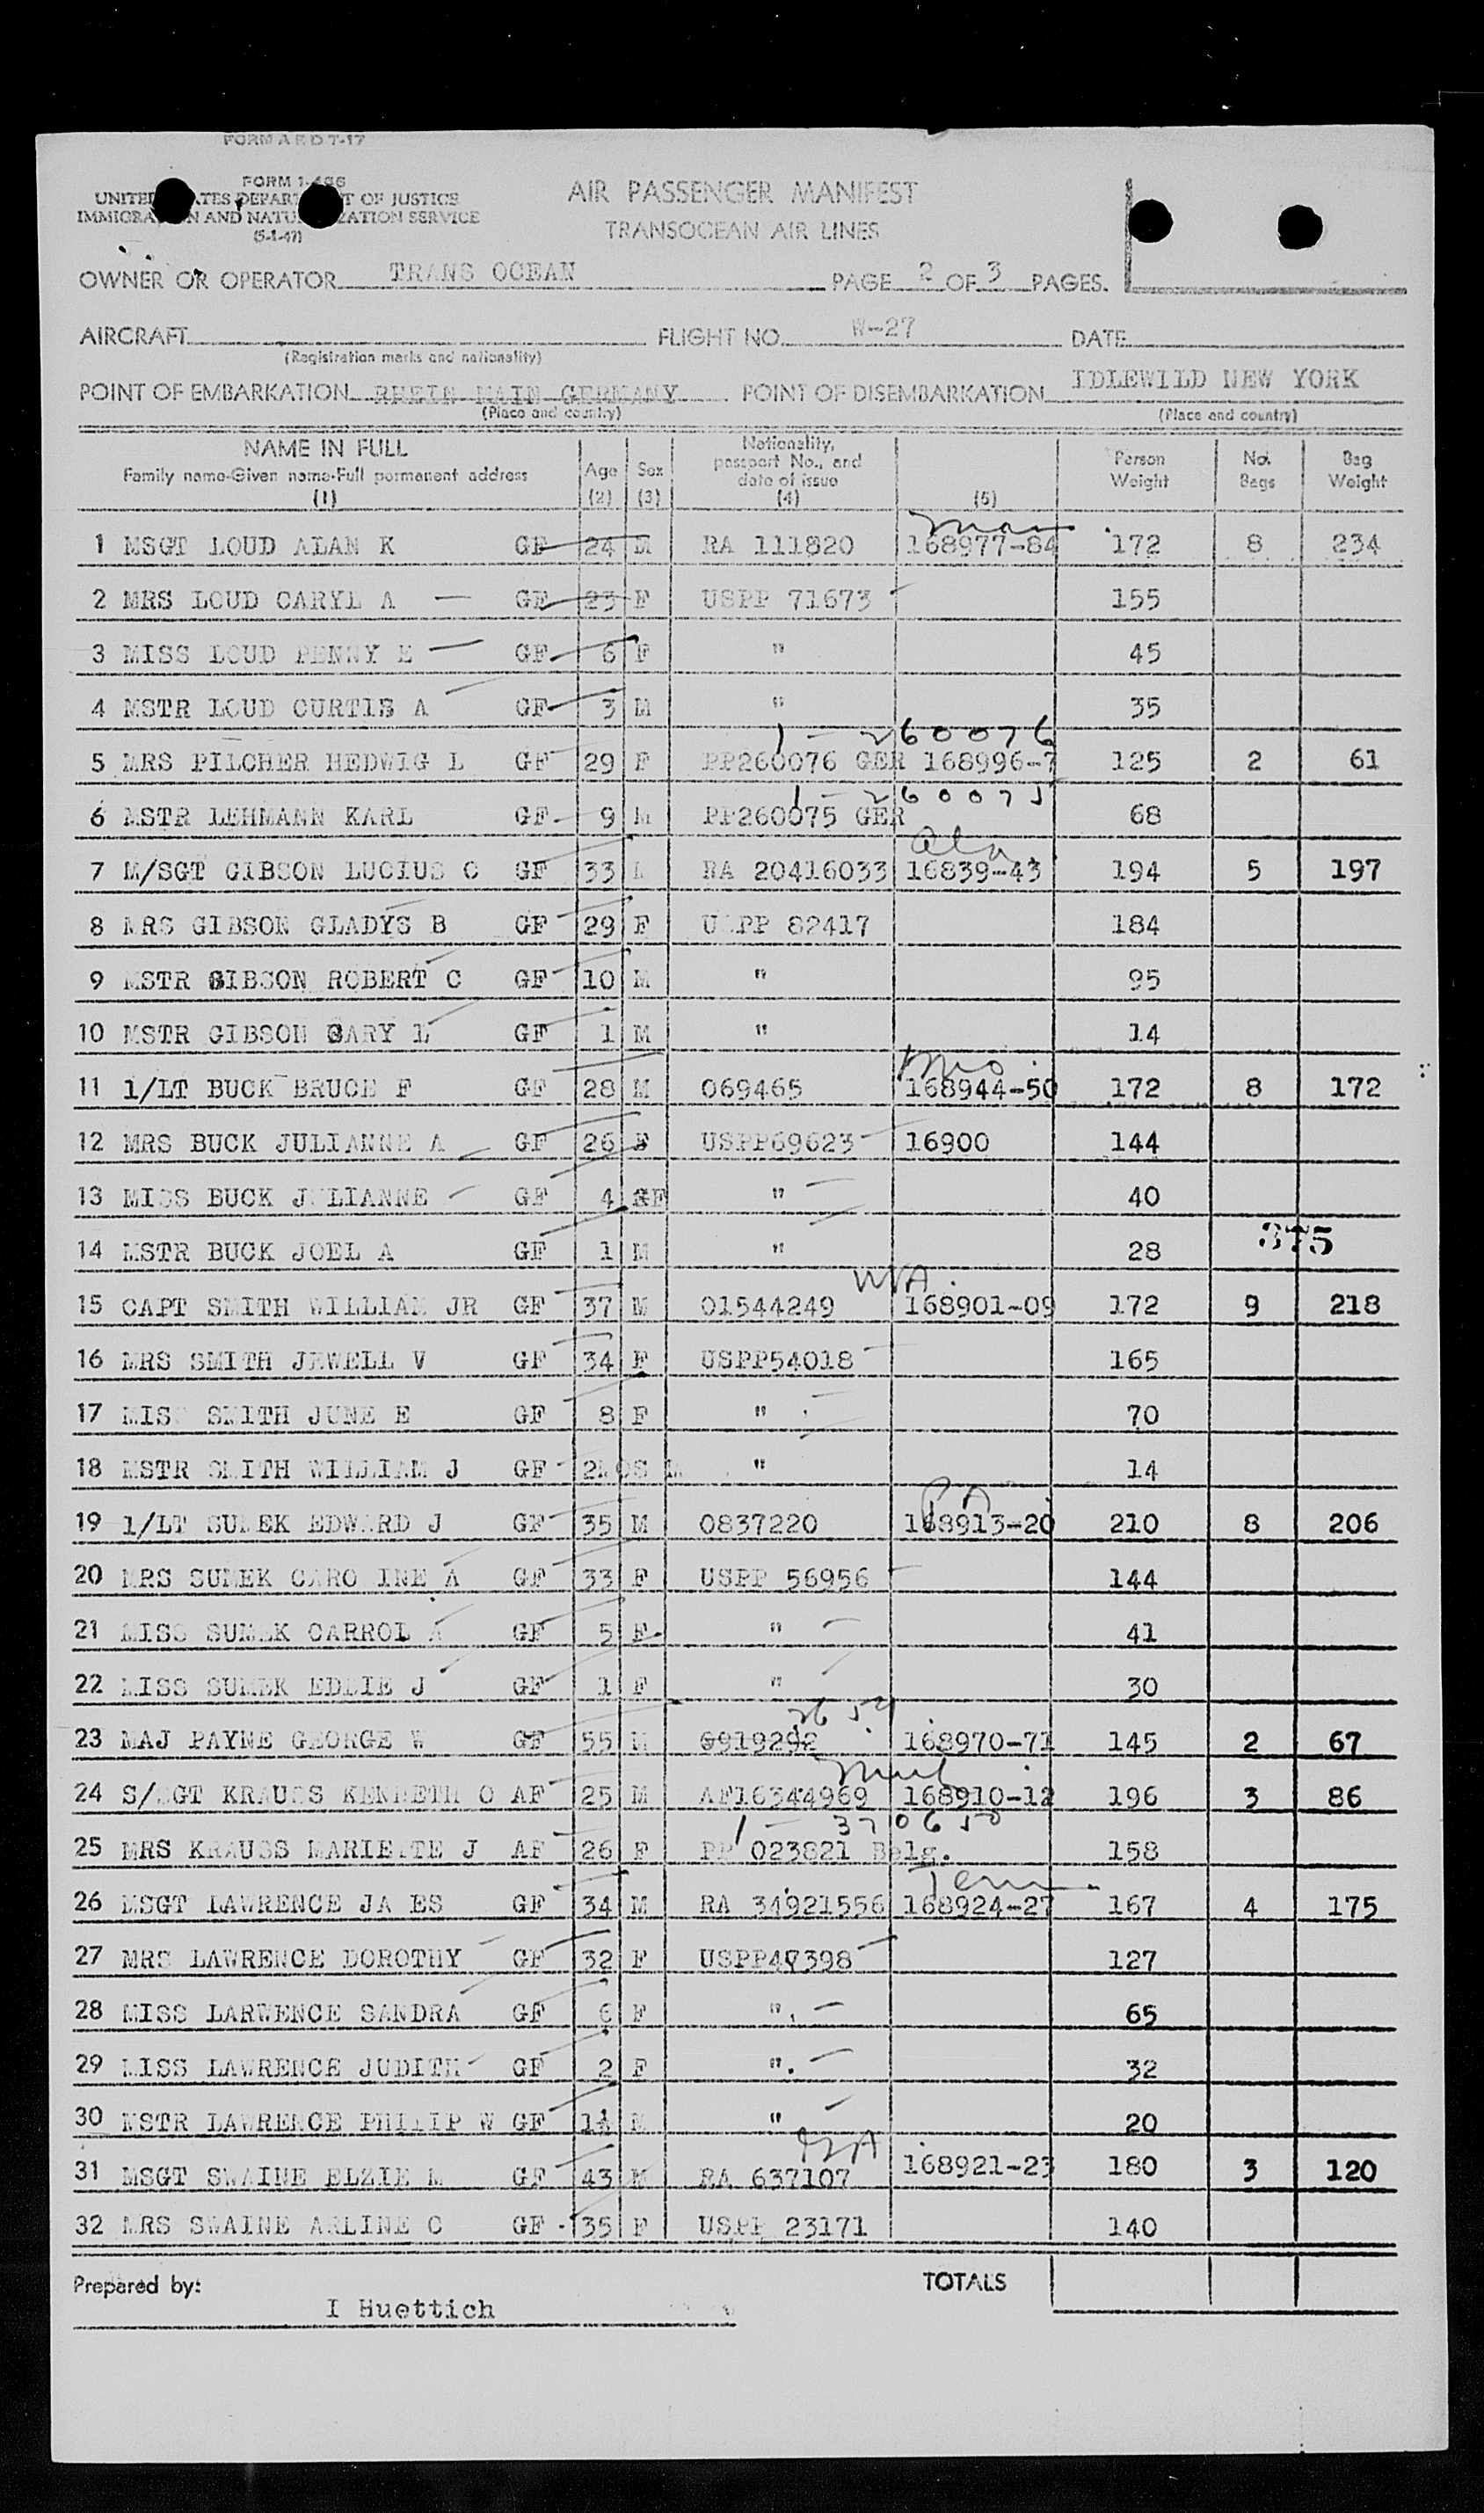 FORM A R D 7-17
FORM I-466
UNITED STATES DEPARTMENT OF JUSTICE
IMMIGRATION AND NATURALIZATION SERVICE
(5-1-47)
AIR PASSENGER MANIFEST
TRANSOCEAN AIR LINES
OWNER OR OPERATOR TRANS OCEAN PAGE 2 OF 3 PAGES.
AIRCRAFT FLIGHT NO. W-27 DATE
(Registration marks and nationality)
POINT OF EMBARKATION RHEIN MAIN GERMANY POINT OF DISEMBARKATION IDLEWILD NEW YORK
(Place and country) (Place and country)
NAME IN FULL
Family name-Given name-Full permanent address
(1)
Age
(2)
Sex
(3)
Nationality,
passport No., and
date of issue
(4)
(5)
Person
Weight
No.
Bags
Bag
Weight
1 MSGT LOUD ALAN K GF 24 M RA 111820 168977-84 172 8 234
2 MRS LOUD CARYL A GF 23 F USPP 71673 155
3 MISS LOUD PENNY E GF 6 F " 45
4 MSTR LOUD CURTIS A GF 3 M " 35
1 - 260076
5 MRS PILCHER HEDWIG L GF 29 F PP260076 GER 168996-7 125 2 61
1 - 260075
6 MSTR LEHMANN KARL GF 9 M PP260075 GER 68
Ala
7 M/SGT GIBSON LUCIUS C GF 33 M RA 20416033 16839-43 194 5 197
8 MRS GIBSON GLADYS B GF 29 F USPP 82417 184
9 MSTR GIBSON ROBERT C GF 10 M " 95
10 MSTR GIBSON GARY L GF 1 M " 14
11 1/LT BUCK BRUCE F GF 28 M 069465 168944-50 172 8 172
12 MRS BUCK JULIANNE A GF 26 F USPP69623 16900 144
13 MISS BUCK JULIANNE GF 4 F " 40
14 MSTR BUCK JOEL A GF 1 M " 28
375
15 CAPT SMITH WILLIAM JR GF 37 M 01544249 168901-09 172 9 218
16 MRS SMITH JEWELL V GF 34 F USPP54018 165
17 MISS SMITH JUNE E GF 8 F " 70
18 MSTR SMITH WILLIAM J GF 2MOS M " 14
PA
19 1/LT SUMEK EDWARD J GF 35 M 0837220 168913-20 210 8 206
20 MRS SUMEK CAROLINE A GF 33 F USPP 56956 144
21 MISS SUMEK CARROL A GF 5 F " 41
22 MISS SUMEK EDDIE J GF 1 F " 30
23 MAJ PAYNE GEORGE W GF 55 M 0919292 168970-71 145 2 67
Mich
24 S/SGT KRAUSS KENNETH O AF 25 M AF16344969 168910-12 196 3 86
1 - 370650
25 MRS KRAUSS MARIETTE J AF 26 F PP 023821 Belg. 158
Tenn
26 MSGT LAWRENCE JAMES GF 34 M RA 34921556 168924-27 167 4 175
27 MRS LAWRENCE DOROTHY GF 32 F USPP47398 127
28 MISS LARWENCE SANDRA GF 6 F " 65
29 MISS LAWRENCE JUDITH GF 2 F " 32
30 MSTR LAWRENCE PHILIP W GF M " 20
31 MSGT SWAINE ELZIE M GF 43 M RA 637107 168921-23 180 3 120
32 MRS SWAINE ARLINE C GF 35 F USPP 23171 140
Prepared by: TOTALS
I Huettich